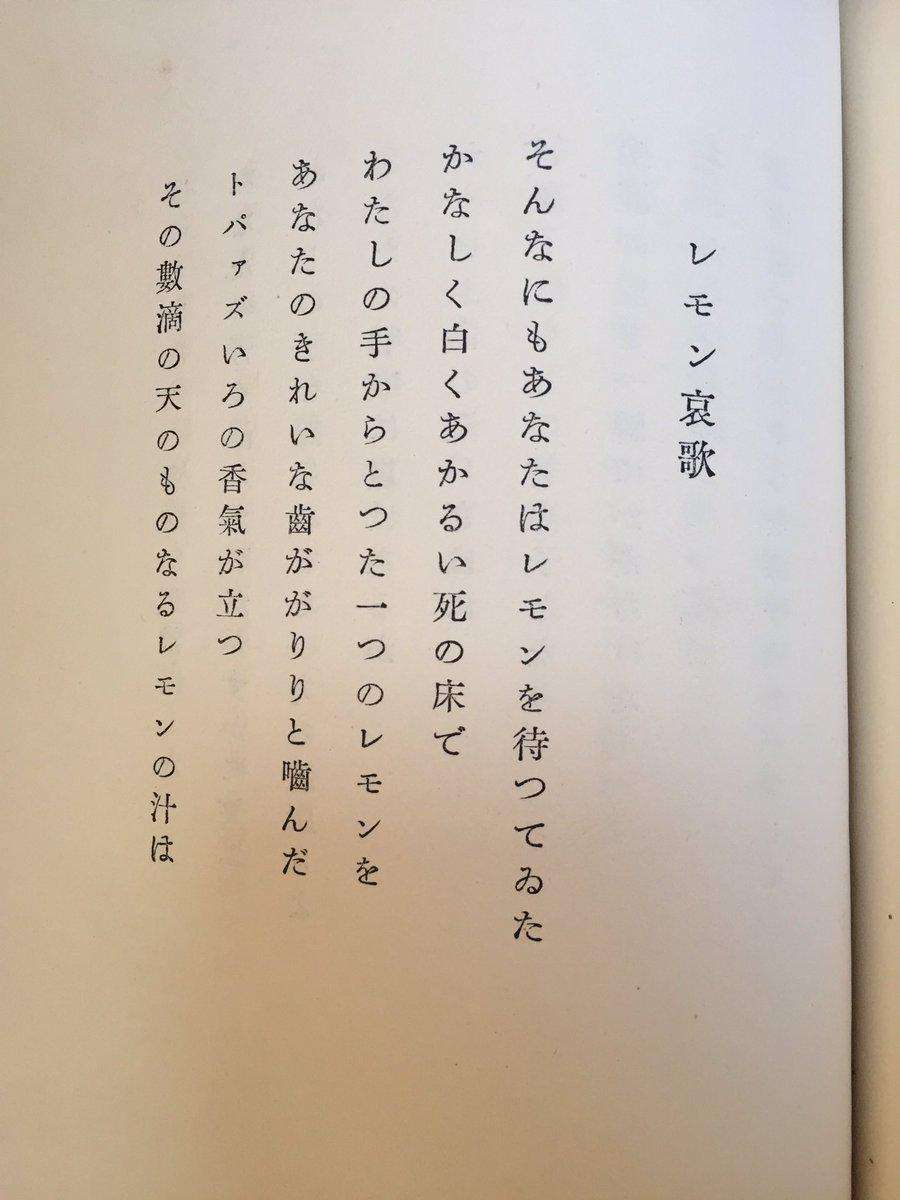 レモン哀歌
そんなにもあなたはレモンを待つてゐた
かなしく白くあかるい死の床で
わたしの手からとつた一つのレモンを
あなたのきれいな齒ががりりと嚙んだ
トパァズいろの香氣が立つ
その數滴の天のものなるレモンの汁は